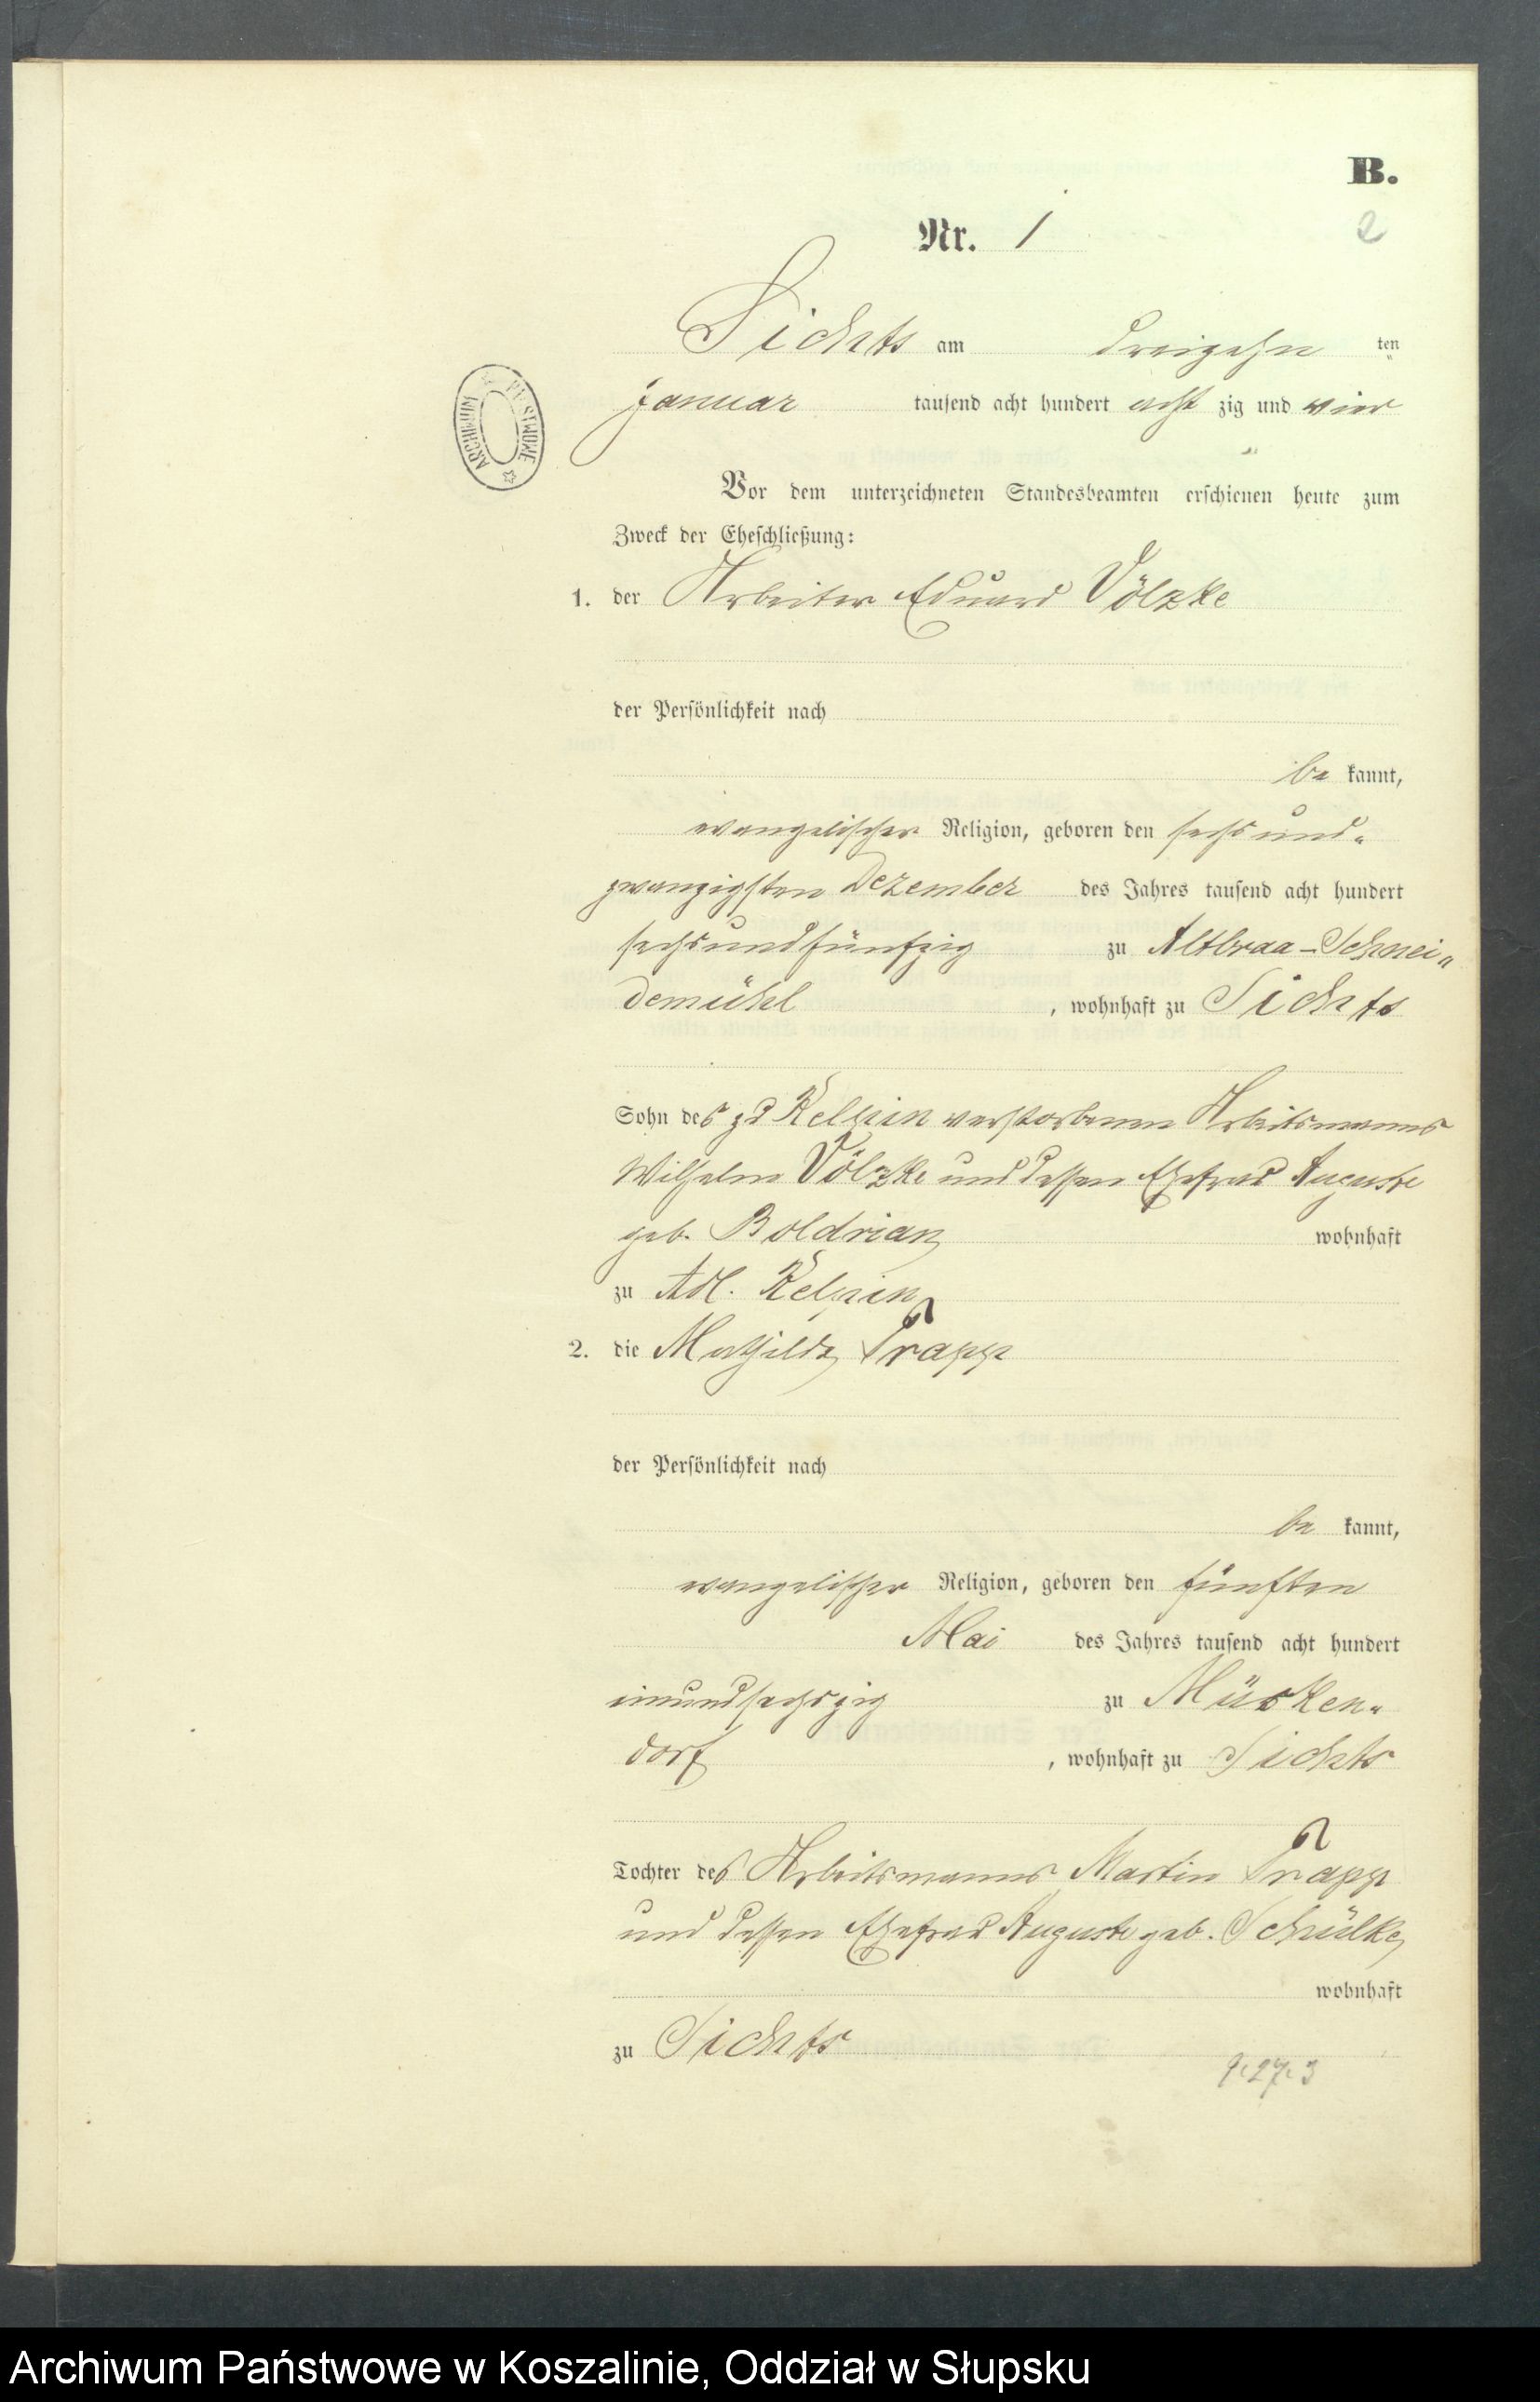 B.
Nr. 1
2
Sichts am dreizehn ten
Januar tausend acht hundert acht zig und vier
Vor dem unterzeichneten Standesbeamten erschienen heute zum
Zweck der Eheschließung:
1. der Arbeiter Eduard Völzke
der Persönlichkeit nach
be kannt,
evangelischer Religion, geboren den sechsund-
zwanzigsten Dezember des Jahres tausend acht hundert
sechsundfünfzig zu Altbraa-Schnei-
demühl, wohnhaft zu Sichts
Sohn des zu Kelpin verstorbenen Arbeitsmanns
Wilhelm Völzke und dessen Ehefrau Auguste
geb. Boldrian wohnhaft
zu Adl. Kelpin
2. die Mathilde Trapp
der Persönlichkeit nach
be kannt,
evangelischer Religion, geboren den fünften
Mai des Jahres tausend acht hundert
einundsechszig zu Müsken-
dorf, wohnhaft zu Sichts
Tochter des Arbeitsmanns Martin Trapp
und dessen Ehefrau Auguste geb. Schülke
wohnhaft
zu Sichts
Archiwum Państwowe w Koszalinie, Oddział w Słupsku